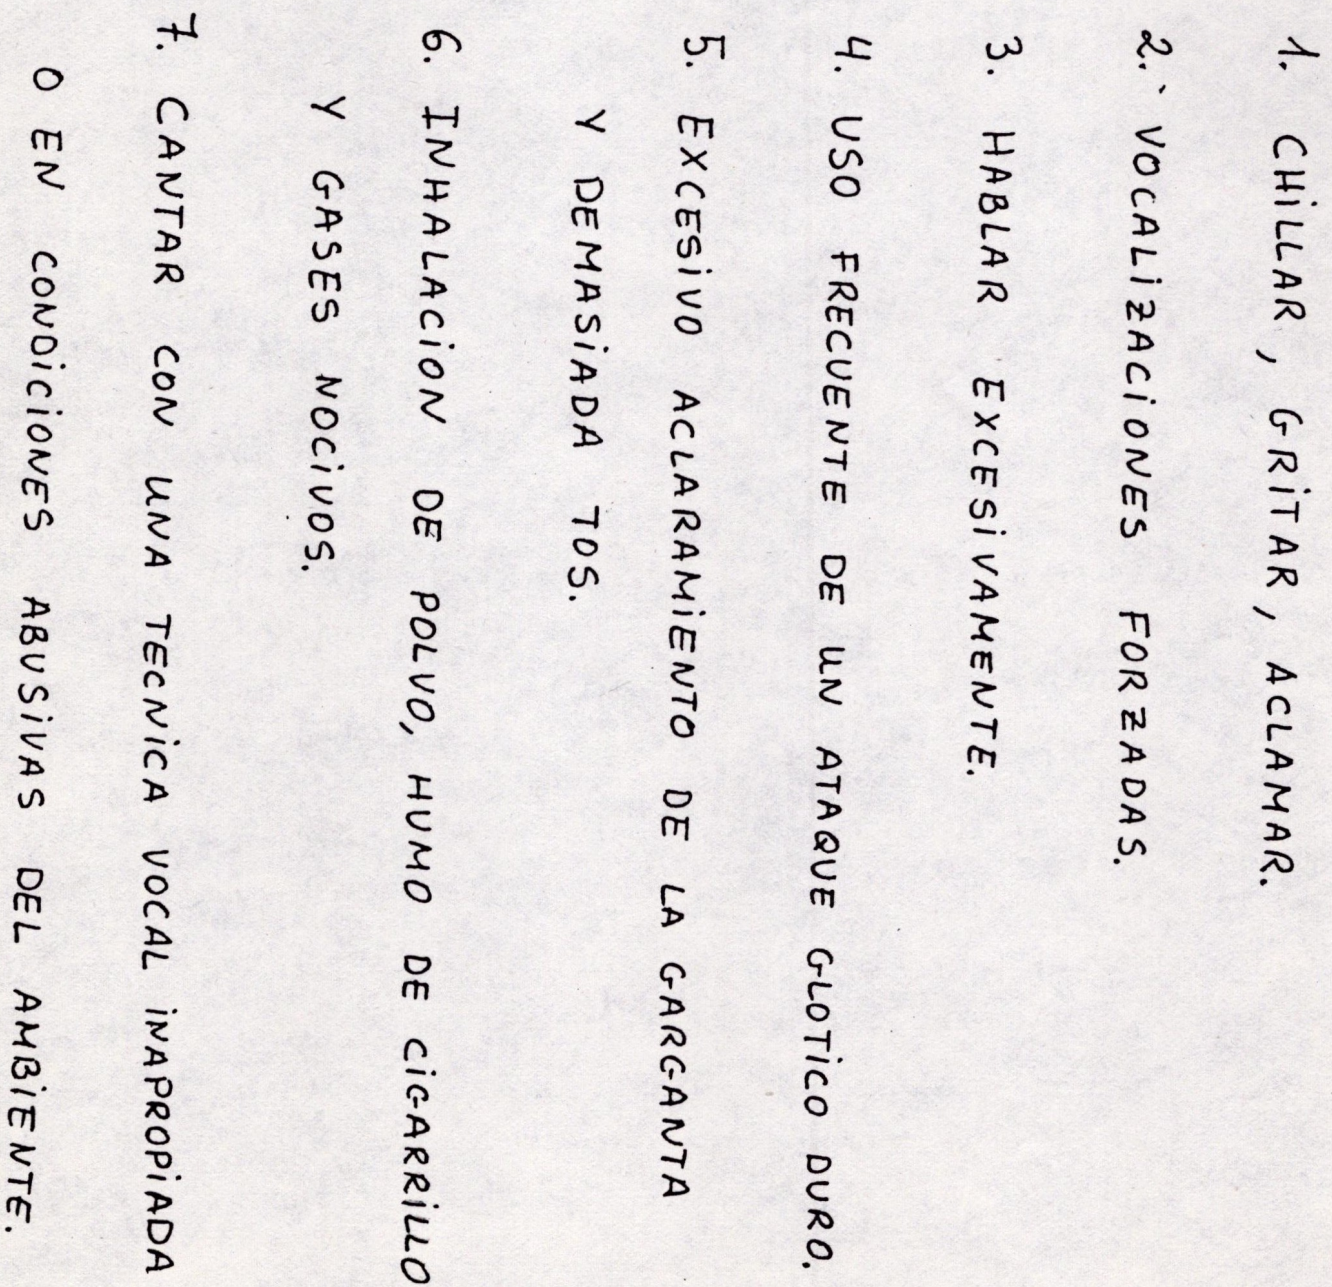 1. CHILLAR, GRITAR, ACLAMAR.
2. VOCALIZACIONES FORZADAS.
3. HABLAR EXCESIVAMENTE.
4. USO FRECUENTE DE UN ATAQUE GLOTICO DURO.
5. EXCESIVO ACLARAMIENTO DE LA GARGANTA
Y DEMASIADA TOS.
6. INHALACION DE POLVO, HUMO DE CIGARRILLO
Y GASES NOCIVOS.
7. CANTAR CON UNA TECNICA VOCAL INAPROPIADA
O EN CONDICIONES ABUSIVAS DEL AMBIENTE.